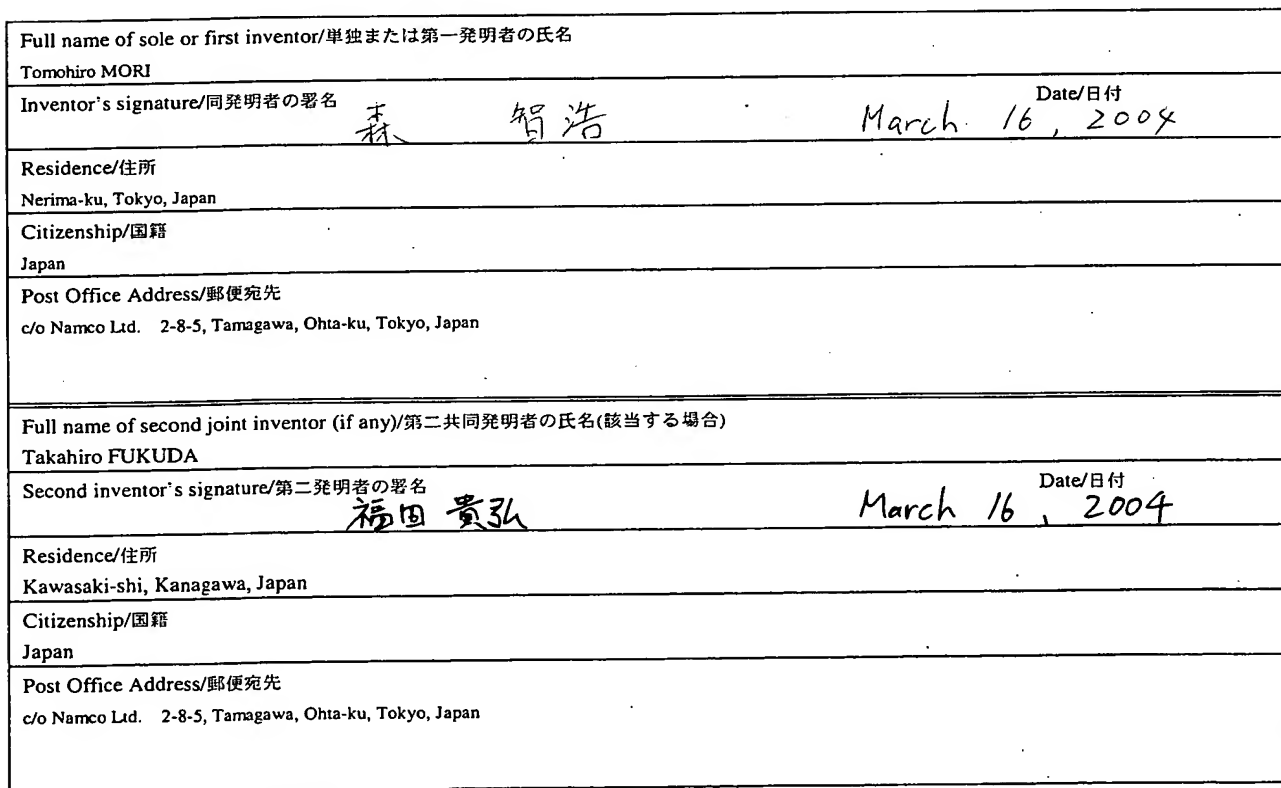 Full name of sole or first inventor/単独または第一発明者の氏名
Tomohiro MORI
Inventor's signature/同発明者の署名 森 智浩 Date/日付 March 16, 2004
Residence/住所
Nerima-ku, Tokyo, Japan
Citizenship/国籍
Japan
Post Office Address/郵便宛先
c/o Namco Ltd. 2-8-5, Tamagawa, Ohta-ku, Tokyo, Japan
Full name of second joint inventor (if any)/第二共同発明者の氏名(該当する場合)
Takahiro FUKUDA
Second inventor's signature/第二発明者の署名 福田 貴弘 Date/日付 March 16, 2004
Residence/住所
Kawasaki-shi, Kanagawa, Japan
Citizenship/国籍
Japan
Post Office Address/郵便宛先
c/o Namco Ltd. 2-8-5, Tamagawa, Ohta-ku, Tokyo, Japan